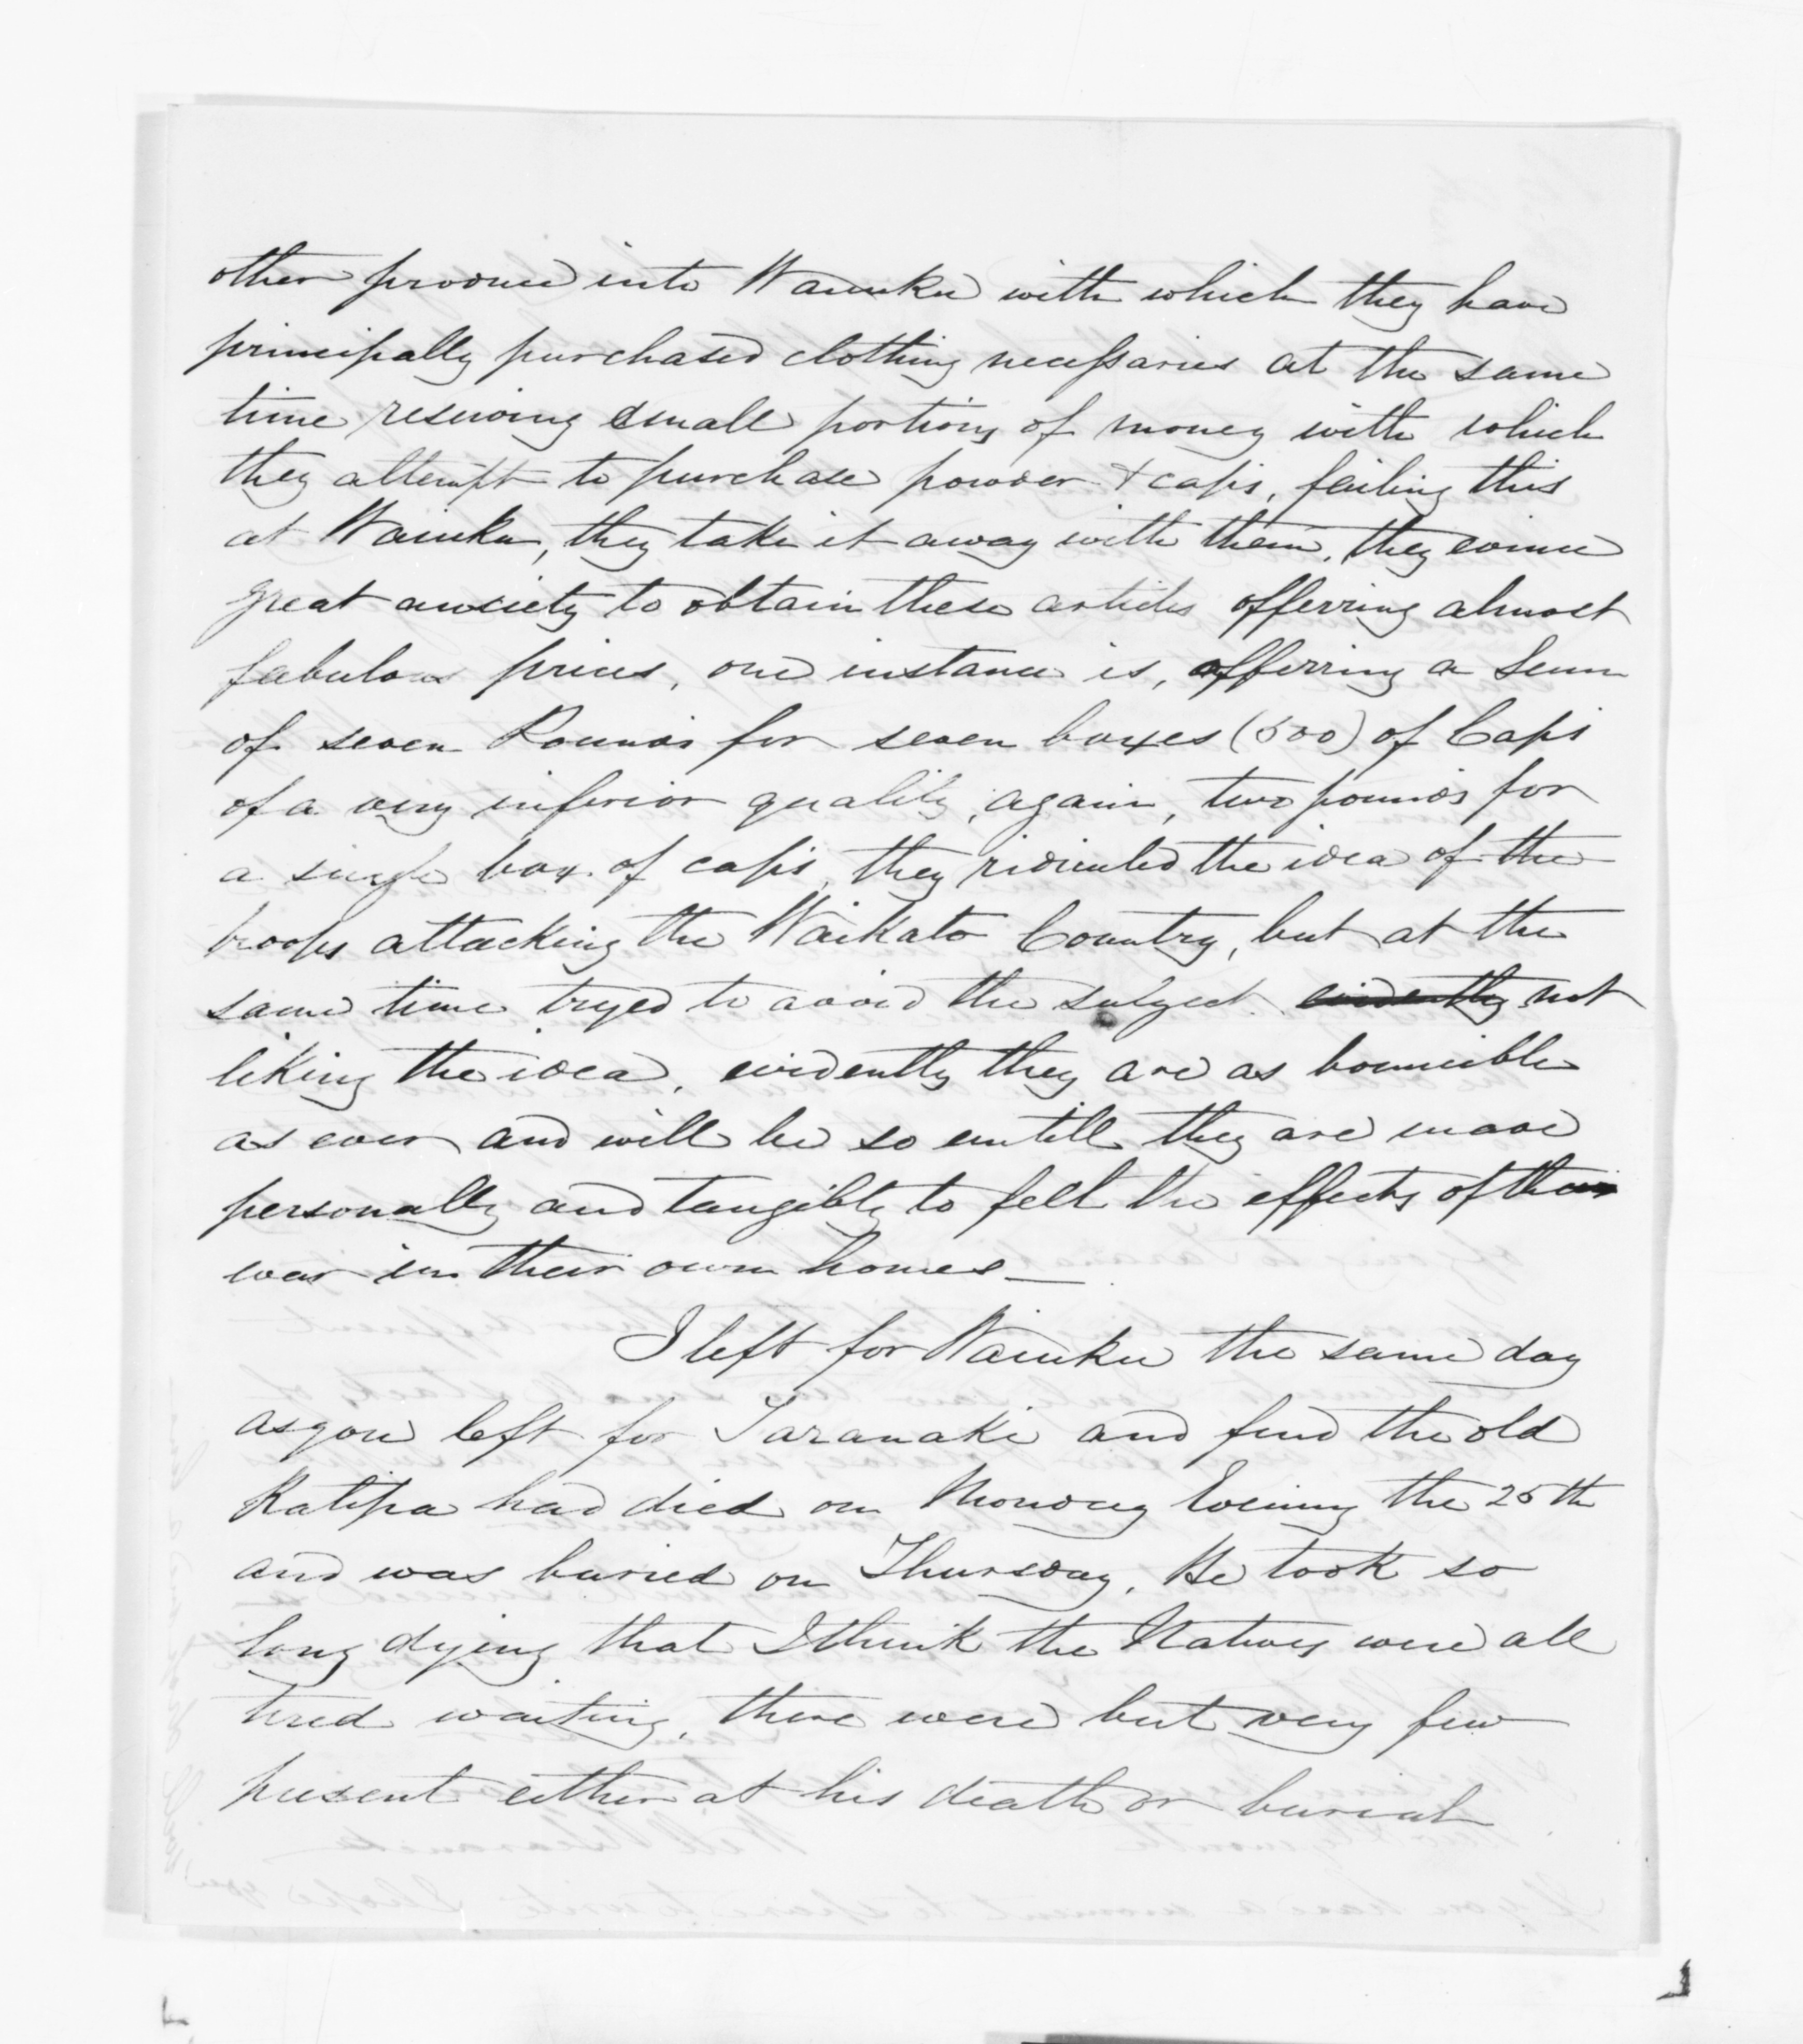 other produce into Waiuku with which they have
principally purchased clothing necessaries at the same
time reserving small portions of money with which
they attempt to purchase powder & caps, failing this
at Waiuku, they take it away with them, they evince
great anxiety to obtain these articles offerring almost
fabulous prices, one instance is, offerring a Sum
of seven Pounds for seven boxes (500) of Caps
of a very inferior quality, again, two pounds for
a single box of caps, they ridiculed the idea of the
troops attacking the Waikato Country, but at the
same time tryed to avoid the subject evidently not
liking the idea, evidently they are as bouncible
as ever and will be so untill they are made
personally and tangibly to fell the effects of the
war in their own homes —
I left for Waiuku the same day
as you left for Taranaki and find the old
Katipa had died on Monday Evening the 25th
and was buried on Thursday. He took so
long dying that I think the Natives were all
tired waiting, there were but very few
present either at his death or burial